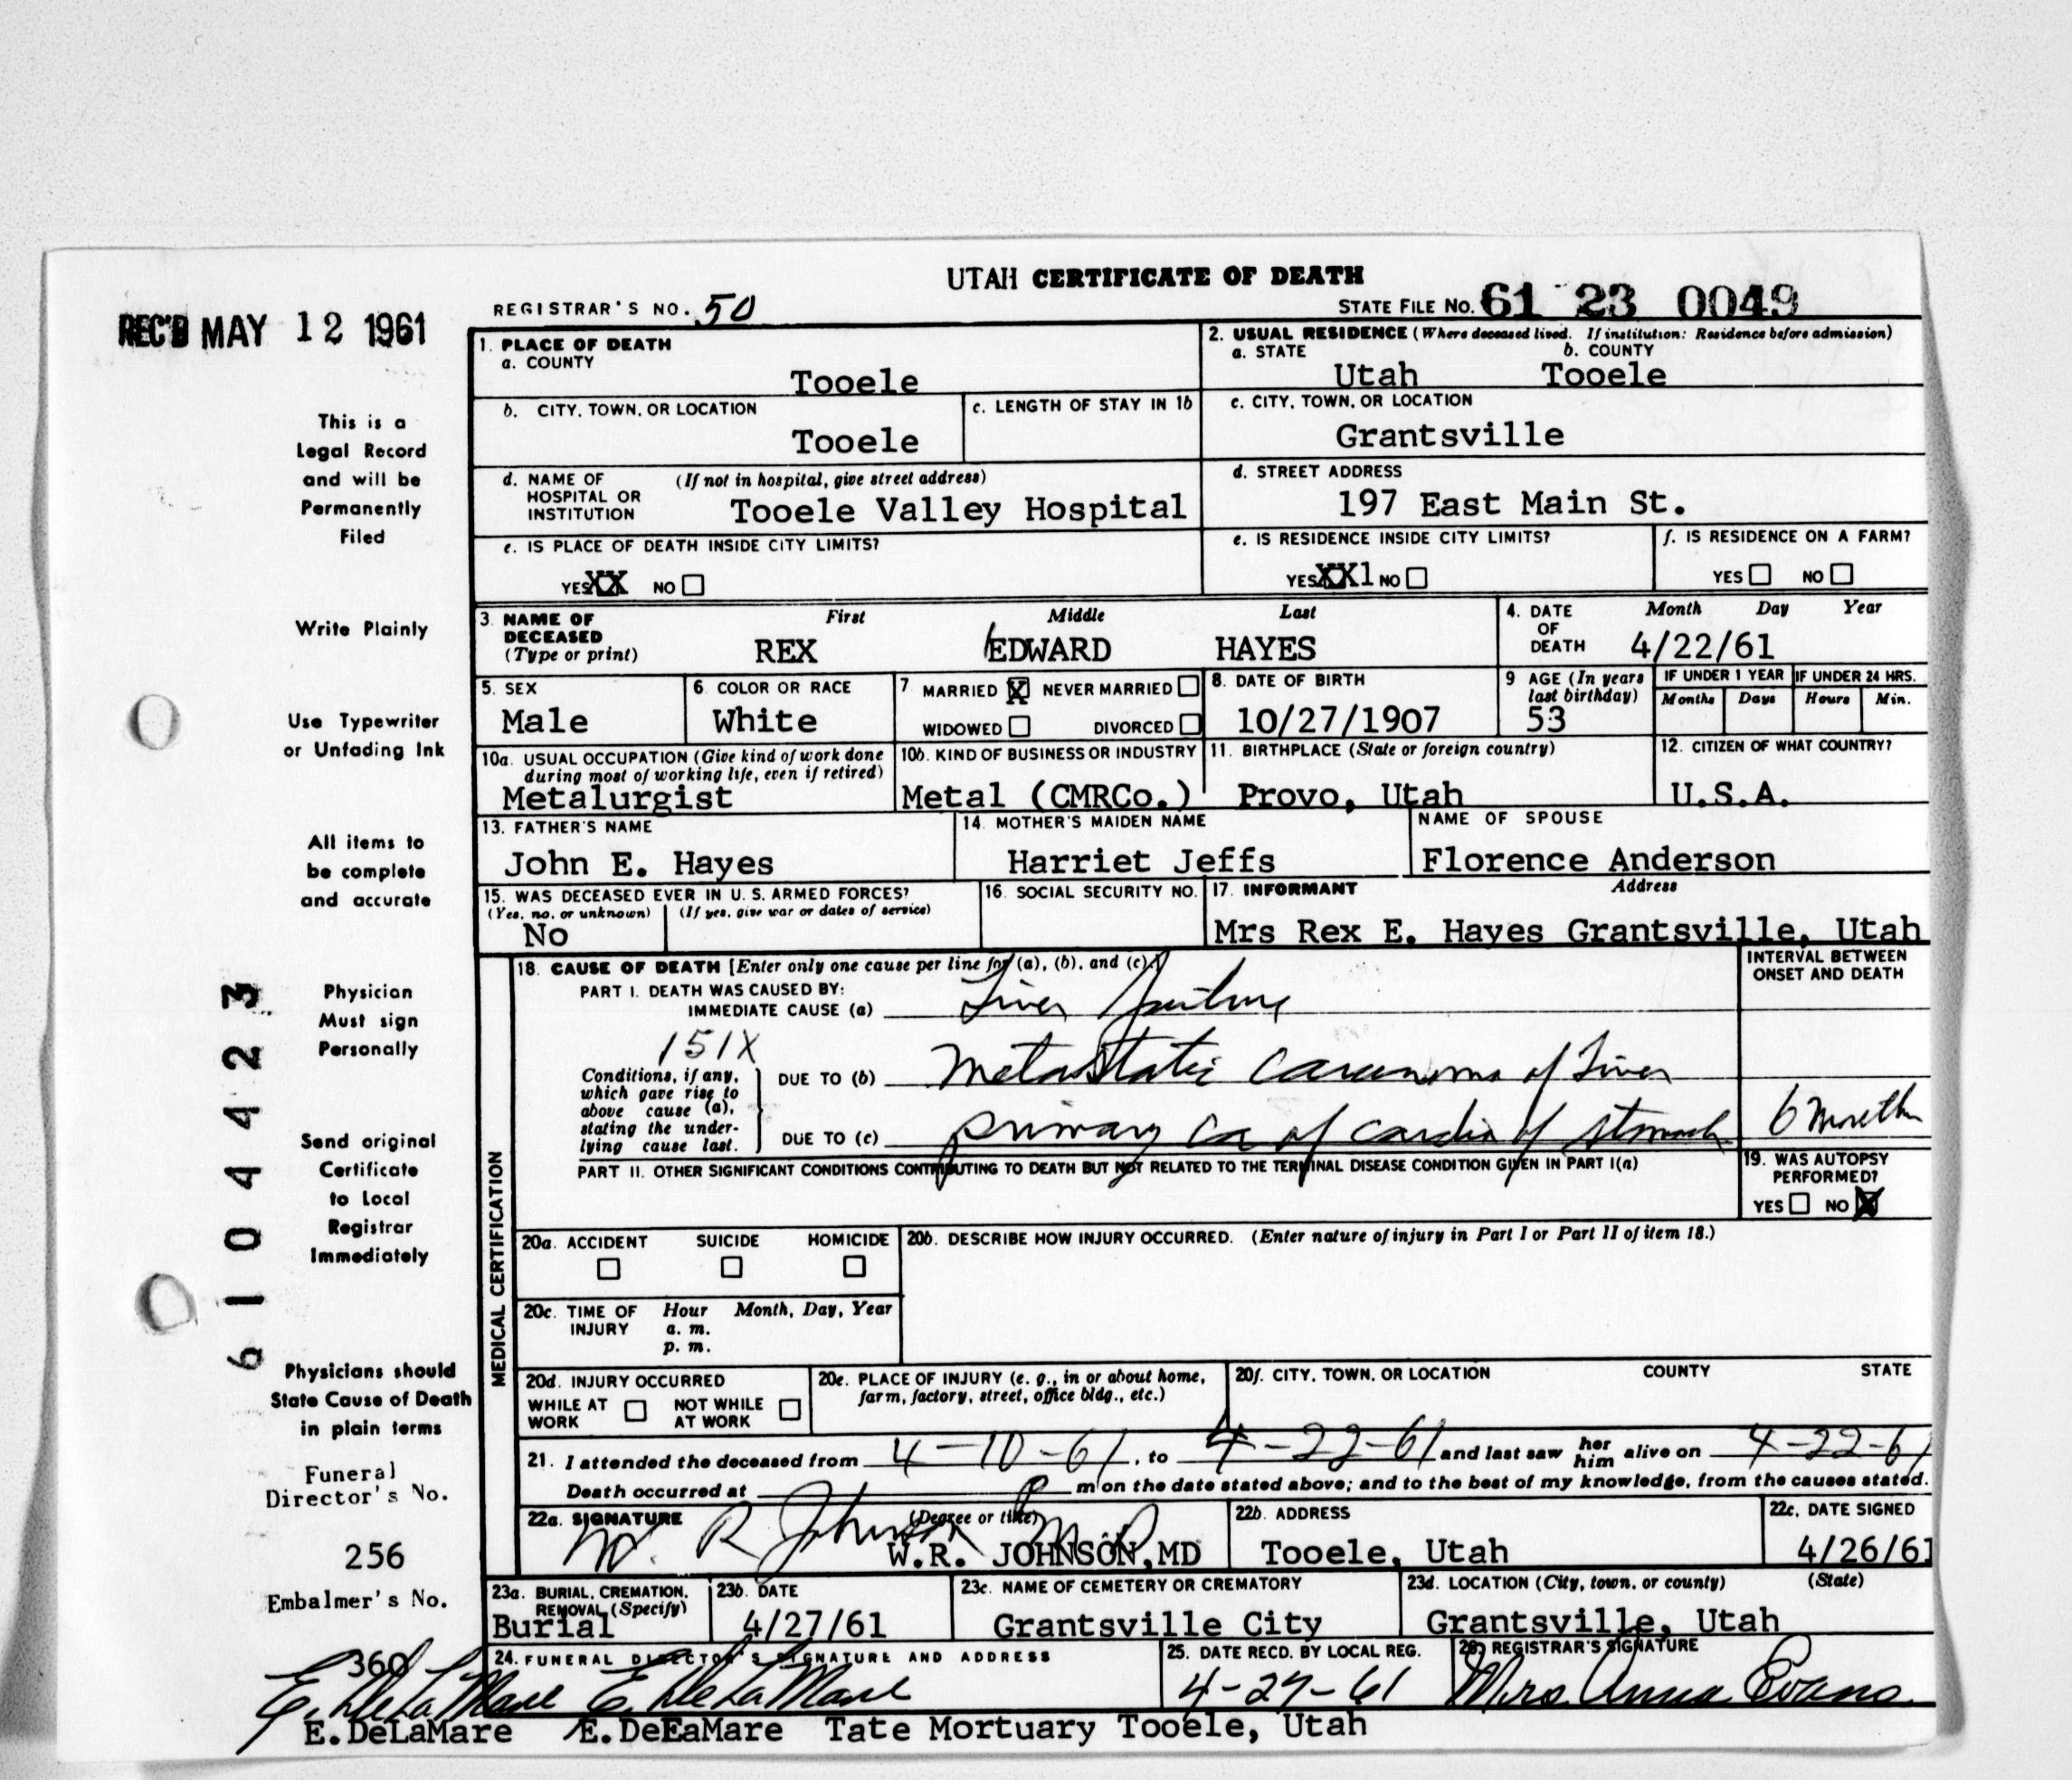 UTAH CERTIFICATE OF DEATH
REC'D MAY 12 1961
REGISTRAR'S NO. 50
STATE FILE NO. 61 23 0049
This is a
Legal Record
and will be
Permanently
Filed
Write Plainly
Use Typewriter
or Unfading Ink
All items to
be complete
and accurate
Physician
Must sign
Personally
Send original
Certificate
to Local
Registrar
Immediately
Physicians should
State Cause of Death
in plain terms
Funeral
Director's No.
256
Embalmer's No.
360
6104423
1. PLACE OF DEATH
a. COUNTY
Tooele
2. USUAL RESIDENCE (Where deceased lived. If institution: Residence before admission)
a. STATE b. COUNTY
Utah Tooele
b. CITY, TOWN, OR LOCATION
Tooele
c. LENGTH OF STAY IN 1b
c. CITY, TOWN, OR LOCATION
Grantsville
d. NAME OF (If not in hospital, give street address)
HOSPITAL OR
INSTITUTION Tooele Valley Hospital
d. STREET ADDRESS
197 East Main St.
e. IS PLACE OF DEATH INSIDE CITY LIMITS?
YES XX NO
e. IS RESIDENCE INSIDE CITY LIMITS?
YES XX1 NO
f. IS RESIDENCE ON A FARM?
YES NO
3. NAME OF First Middle Last
DECEASED
(Type or print) REX EDWARD HAYES
4. DATE Month Day Year
OF
DEATH 4/22/61
5. SEX
Male
6. COLOR OR RACE
White
7. MARRIED X NEVER MARRIED
WIDOWED DIVORCED
8. DATE OF BIRTH
10/27/1907
9. AGE (In years
last birthday)
53
IF UNDER 1 YEAR IF UNDER 24 HRS.
Months Days Hours Min.
10a. USUAL OCCUPATION (Give kind of work done
during most of working life, even if retired)
Metalurgist
10b. KIND OF BUSINESS OR INDUSTRY
Metal (CMRCo.)
11. BIRTHPLACE (State or foreign country)
Provo, Utah
12. CITIZEN OF WHAT COUNTRY?
U.S.A.
13. FATHER'S NAME
John E. Hayes
14. MOTHER'S MAIDEN NAME
Harriet Jeffs
NAME OF SPOUSE
Florence Anderson
15. WAS DECEASED EVER IN U.S. ARMED FORCES?
(Yes, no, or unknown) (If yes, give war or dates of service)
No
16. SOCIAL SECURITY NO.
17. INFORMANT Address
Mrs Rex E. Hayes Grantsville, Utah
MEDICAL CERTIFICATION
18. CAUSE OF DEATH [Enter only one cause per line for (a), (b), and (c).]
INTERVAL BETWEEN
ONSET AND DEATH
PART I. DEATH WAS CAUSED BY:
IMMEDIATE CAUSE (a) Liver failure
151X
Conditions, if any,
which gave rise to
above cause (a),
stating the under-
lying cause last.
DUE TO (b) Metastatic Carcinoma of Liver
DUE TO (c) primary Ca of cardia of stomach 6 months
PART II. OTHER SIGNIFICANT CONDITIONS CONTRIBUTING TO DEATH BUT NOT RELATED TO THE TERMINAL DISEASE CONDITION GIVEN IN PART I(a)
19. WAS AUTOPSY
PERFORMED?
YES NO X
20a. ACCIDENT SUICIDE HOMICIDE
20b. DESCRIBE HOW INJURY OCCURRED. (Enter nature of injury in Part I or Part II of item 18.)
20c. TIME OF Hour Month, Day, Year
INJURY a. m.
p. m.
20d. INJURY OCCURRED
WHILE AT NOT WHILE
WORK AT WORK
20e. PLACE OF INJURY (e. g., in or about home,
farm, factory, street, office bldg., etc.)
20f. CITY, TOWN, OR LOCATION COUNTY STATE
21. I attended the deceased from 4-10-61, to 4-22-61 and last saw her him alive on 4-22-61
Death occurred at P m on the date stated above; and to the best of my knowledge, from the causes stated.
22a. SIGNATURE (Degree or title)
W. R. Johnson M.D.
W.R. JOHNSON, MD
22b. ADDRESS
Tooele, Utah
22c. DATE SIGNED
4/26/61
23a. BURIAL, CREMATION,
REMOVAL (Specify)
Burial
23b. DATE
4/27/61
23c. NAME OF CEMETERY OR CREMATORY
Grantsville City
23d. LOCATION (City, town, or county) (State)
Grantsville, Utah
24. FUNERAL DIRECTOR'S SIGNATURE AND ADDRESS
E. DeLaMare E. DeLaMare
25. DATE RECD. BY LOCAL REG.
4-27-61
26. REGISTRAR'S SIGNATURE
Mrs. Anna Evans
E.DeLaMare E.DeEaMare Tate Mortuary Tooele, Utah